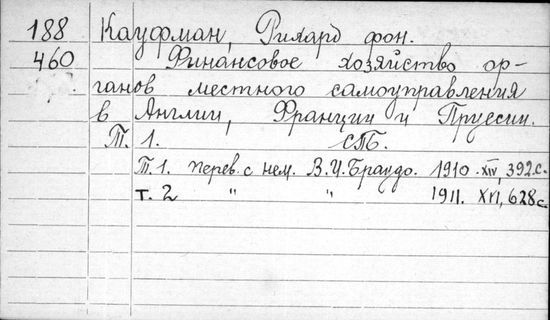 188 Кауфман, Рихард фон.
460 Финансовое хозяйство ор-
ганов местного самоуправления
в Англии, Франции и Пруссии.
Т. 1. СПБ.
Т. 1. перев. с нем. В. И. Браудо. 1910. XIV, 392 с.
т. 2 " " 1911. XVI, 628 с.